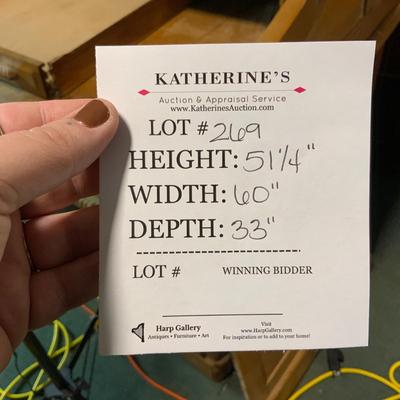 KATHERINE'S
Auction & Appraisal Service
www.KatherinesAuction.com
LOT # 269
HEIGHT: 51 1/4"
WIDTH: 60"
DEPTH: 33"
LOT # WINNING BIDDER
Harp Gallery
Antiques • Furniture • Art
Visit
www.HarpGallery.com
For inspiration or to add to your home!